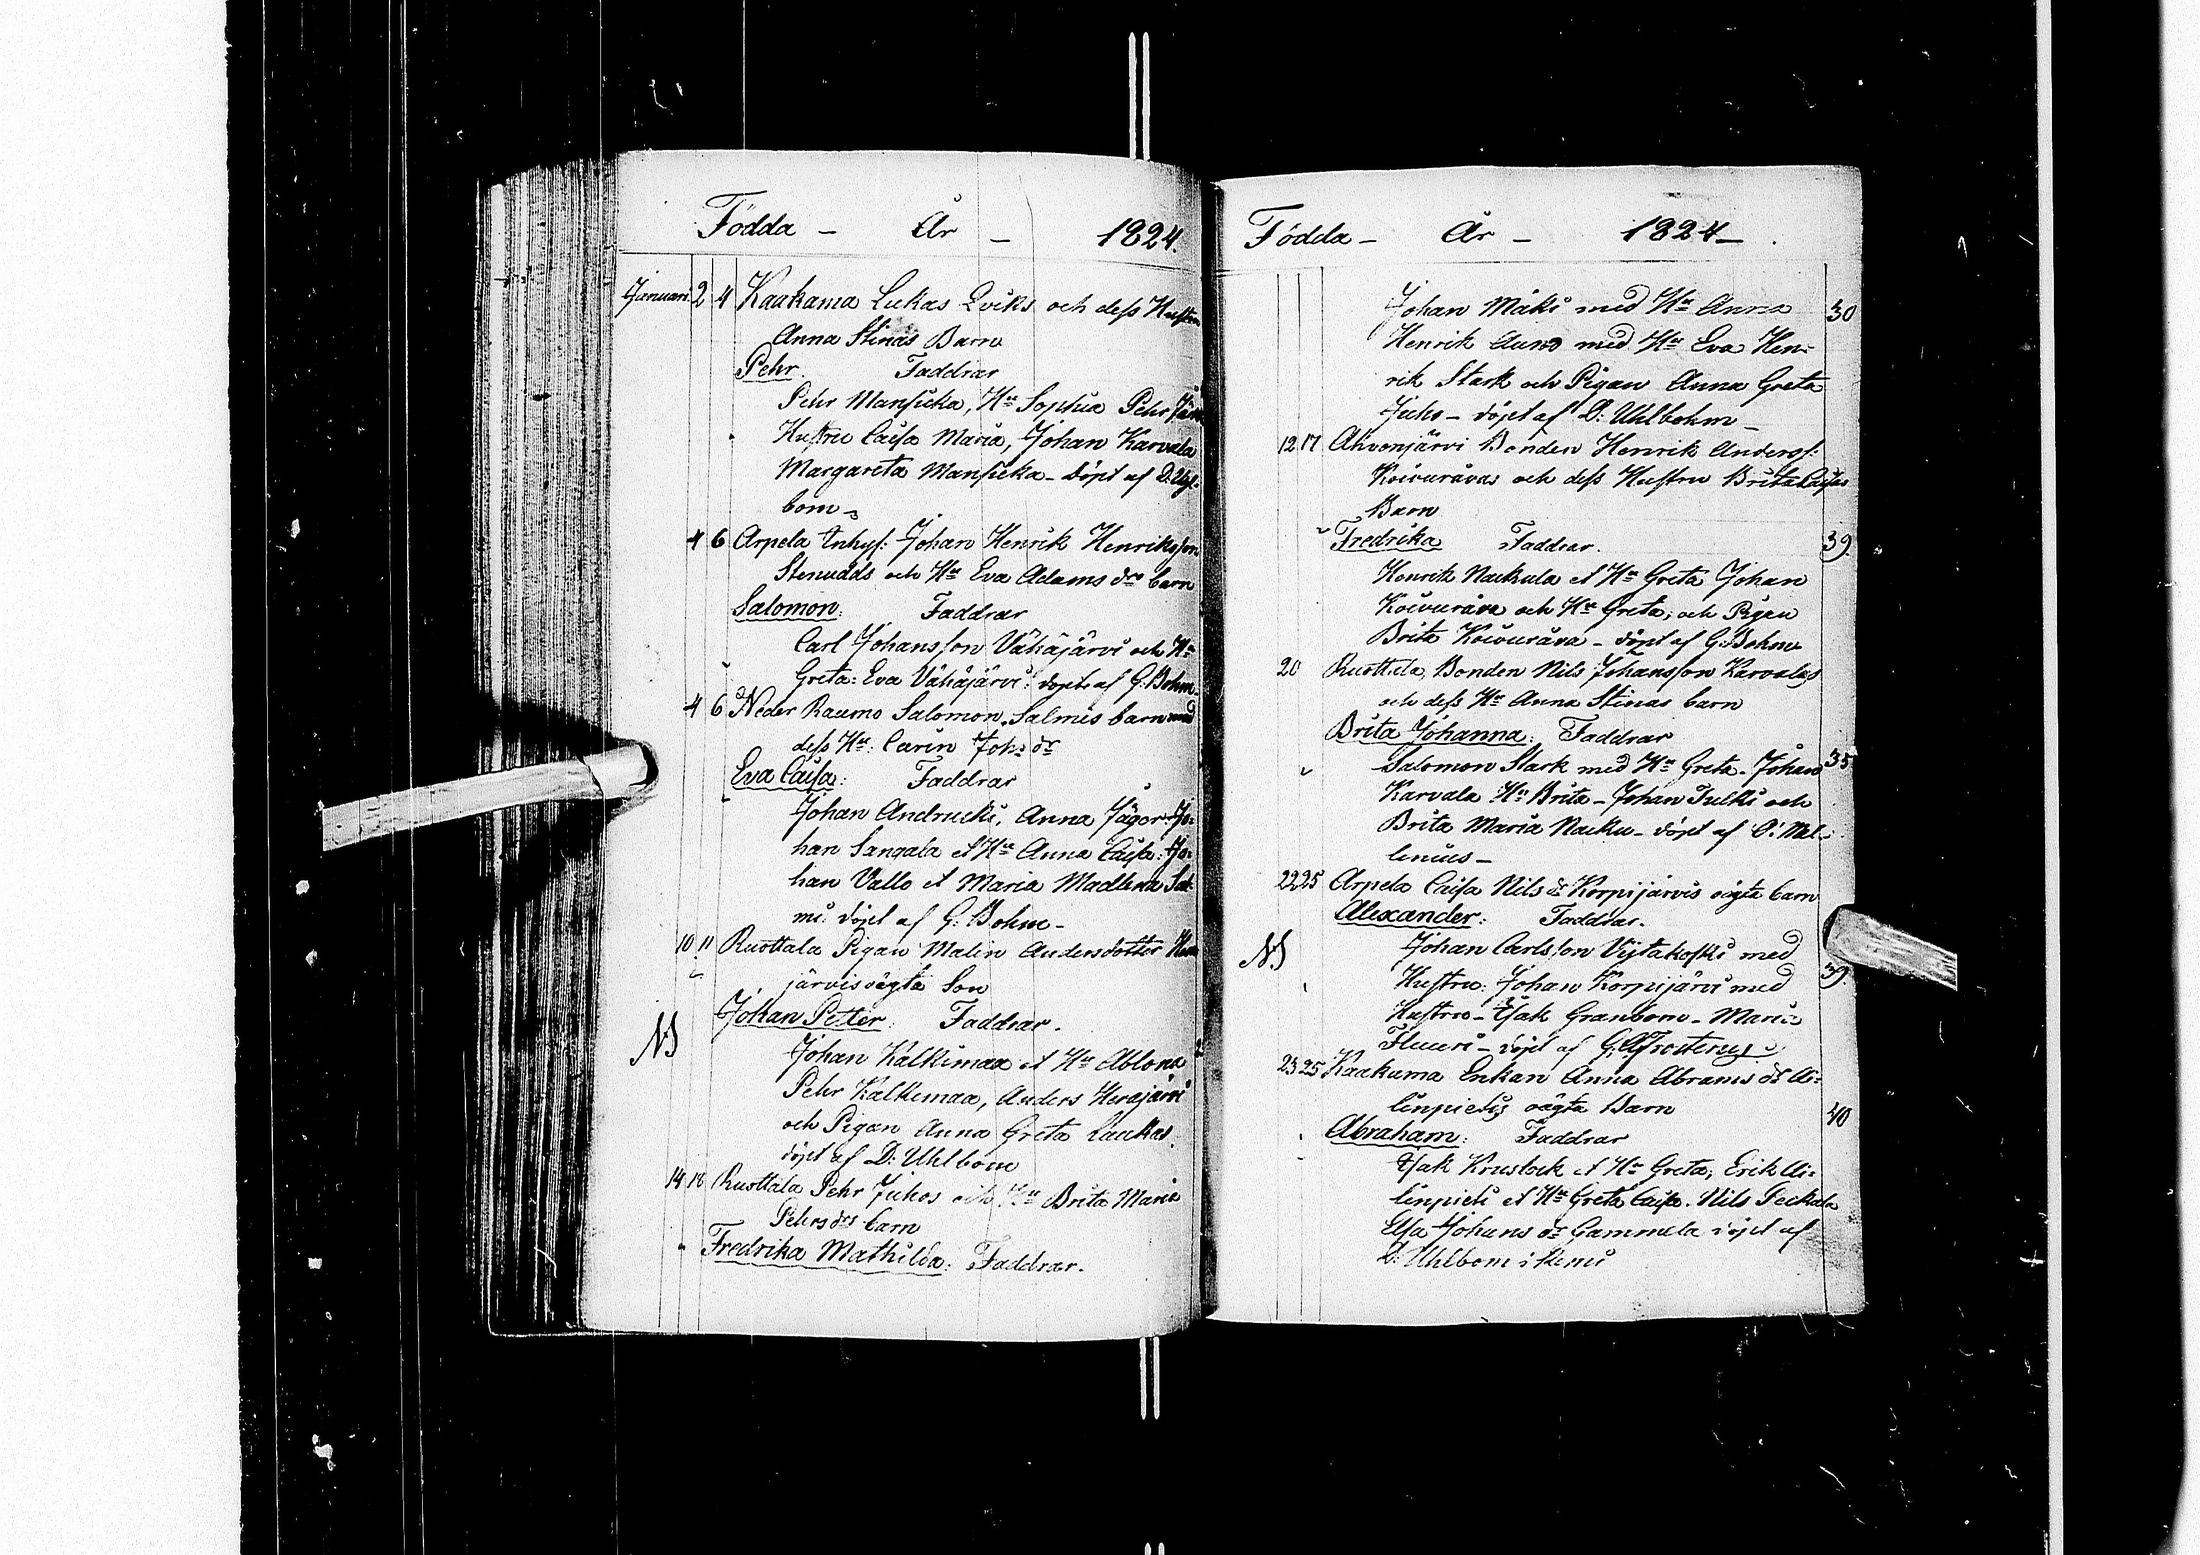 Födda - År - 1824.
Januari 2 4 Kaakama Lukas Qviks och dess Hustru
Anna Stinas Barn
Pehr. Faddrar
Pehr Mansicka, Hu Sophia Pehr
Hustru Caisa Maria, Johan Karvala
Margareta Mansicka - döpt af D: Uhl-
bom -
4 6 Arpela Inhys: Johan Henrik Henriksson
Stenudds och Hu Eva Adams drs barn
Salomon: Faddrar
Carl Johansson Vähäjärvi och Hu
Greta: Eva Vähäjärvi: döpt af G: Bohm
4 6 Neder Raumo Salomon Salmis barn med
dess Hu: Carin Johs dr
Eva Caisa: Faddrar
Johan Andrucki, Anna Jäger: Jo-
han Sangala et Hu Anna Caisa: Jo-
han Vallo et Maria Madlena Sal-
mi: döpt af G: Bohm -
10 11 Ruottala Pigan Malin Andersdotter
järvis oägta Son
Johan Peter: Faddrar.
NS
Johan Kalkimaa et Hu Ablona
Pehr Kalkimaa, Anders Herajärvi
och Pigan Anna Greta Laukas.
döpt af D: Uhlbom
14 18 Ruottala Pehr Juhos och Hu Brita Maria
Pehrs drs barn
Fredrika Mathilda: Faddrar.
Födda - År - 1824 -
Johan Mäki med Hu Anna 30
Henrik Auno med Hu Eva Hen-
rik Stark och Pigan Anna Greta
Juho - döpt af D: Uhlbohm -
12 17 Ahvonjärvi Bonden Henrik Anderss:
Koivuråvas och dess Hustru Brita Caisas
Barn
Fredrika Faddrar. 39.
Henrik Nackula et Hu Greta Johan
Koivuråva och Hu Greta, och Pigan
Brita Koivuråva - döpt af G: Bohm
20 Ruottala, Bonden Nils Johansson Karvalas
och dess Hu Anna Stinas barn
Brita Johanna: Faddrar
Salomon Stark med Hu Greta - Johan 35
Karvala Hu Brita - Johan Tulki och
Brita Maria Nacku - döpt af O: Mel-
lenius -
22 25 Arpela Caisa Nils dr Korpijärvis oägta barn
Alexander: Faddrar.
NS
Johan Carlsson Vijtakoski med
Hustru: Johan Korpijärvi med 39.
Hustru - Isak Granbom - Maria
döpt af
23 25 Kaakuma Enkan Anna Abrams dr Ai-
linpietis oägta Barn
Abraham: Faddrar 40
Isak Krustock et Hu Greta, Erik Ai-
linpieti et Hu Greta Caisa. Nils Peckala
Elsa Johans dr Gammela döpt af
D: Uhlbom i Kemi